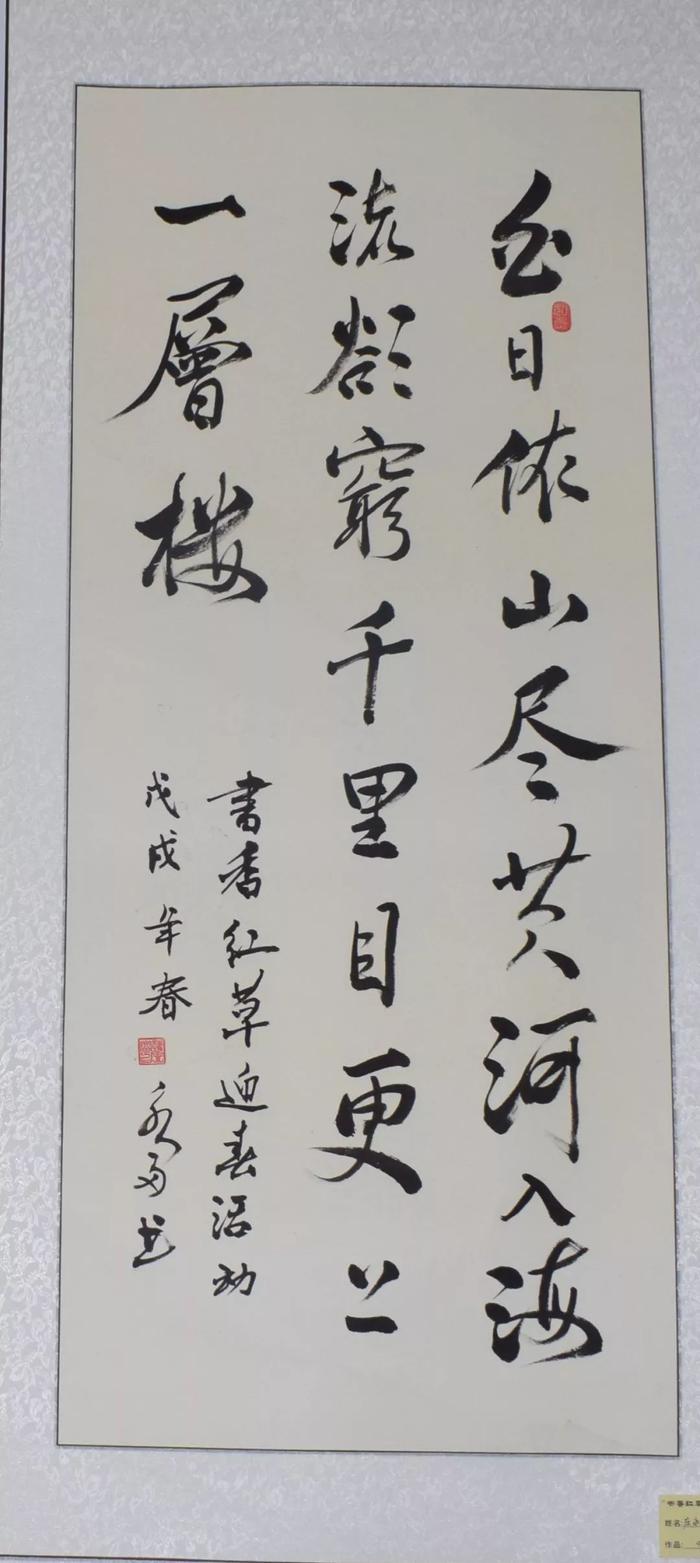 白日依山尽黄河入海
流欲窮千里目更上
一層楼
書香红草迎春活动
戊戌年春
书
书香红草
姓名:
作品: